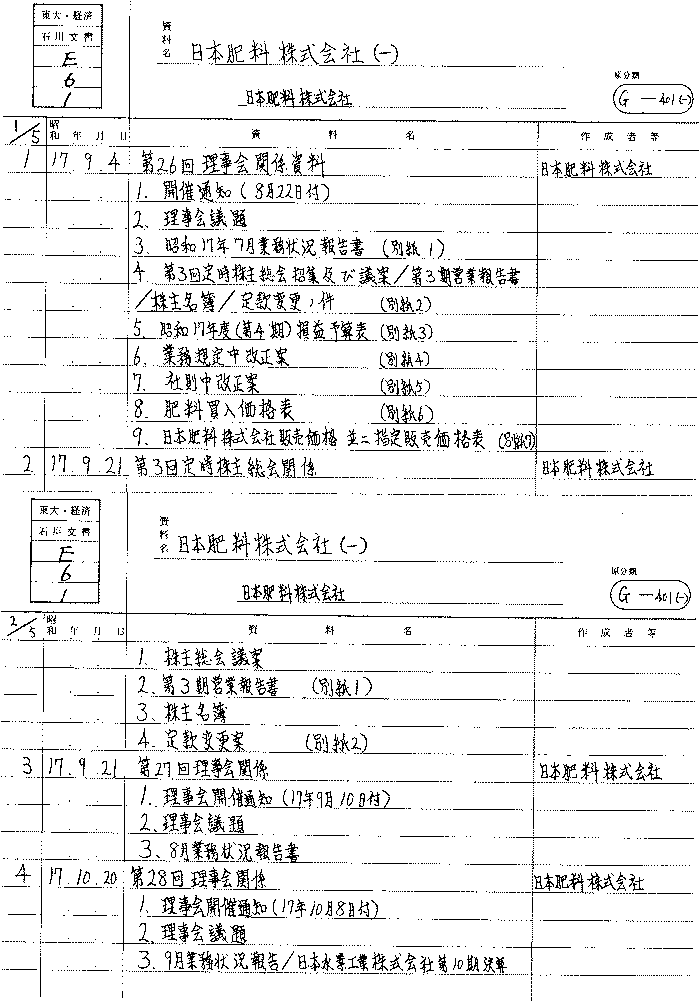 東大・経済
石川文書
E
6
1
資料名
日本肥料株式会社(一)
日本肥料株式会社
原分類
G-401(一)
1/5 昭和 年 月 日 資 料 名 作 成 者 等
1 17.9.4 第26回理事会関係資料 日本肥料株式会社
1. 開催通知(8月22日付)
2. 理事会議題
3. 昭和17年7月業務状況報告書(別紙1)
4. 第3回定時株主総会招集及び議案/第3期営業報告書
/株主名簿/定款変更ノ件 (別紙2)
5. 昭和17年度(第4期)損益予算表(別紙3)
6. 業務規定中改正案 (別紙4)
7. 社則中改正案 (別紙5)
8. 肥料買入価格表 (別紙6)
9. 日本肥料株式会社販売価格並ニ指定販売価格表(別紙7)
2 17.9.21 第3回定時株主総会関係 日本肥料株式会社
東大・経済
石川文書
E
6
1
資料名
日本肥料株式会社(一)
日本肥料株式会社
原分類
G-401(一)
2/5 昭和 年 月 日 資 料 名 作 成 者 等
1. 株主総会議案
2. 第3期営業報告書 (別紙1)
3. 株主名簿
4. 定款変更案 (別紙2)
3 17.9.21 第27回理事会関係 日本肥料株式会社
1. 理事会開催通知(17年9月10日付)
2. 理事会議題
3. 8月業務状況報告書
4 17.10.20 第28回理事会関係 日本肥料株式会社
1. 理事会開催通知(17年10月8日付)
2. 理事会議題
3. 9月業務状況報告/日本水素工業株式会社第10期決算